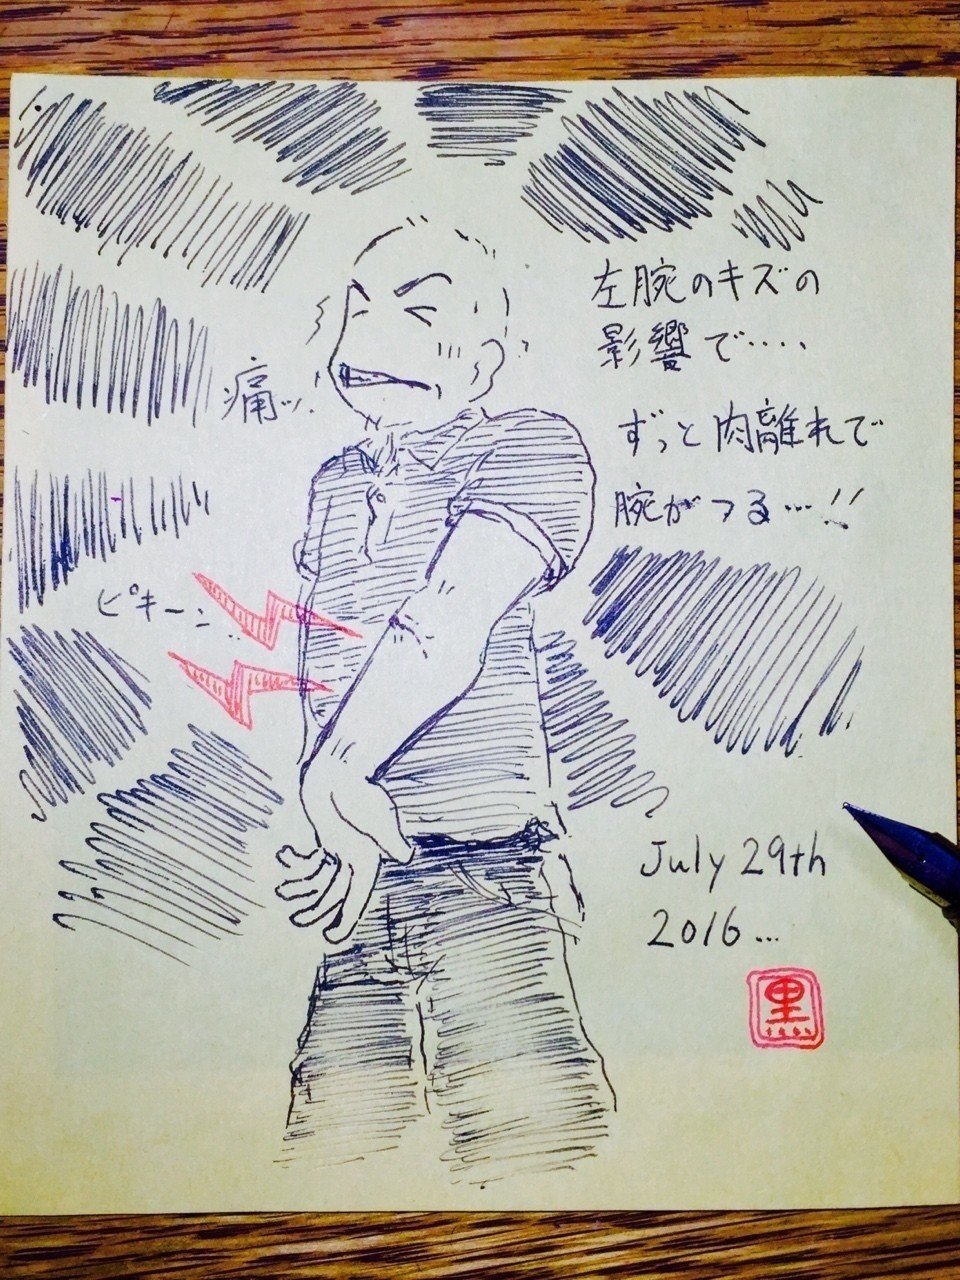 左腕のキズの
影響で‥‥
ずっと肉離れで
腕がつる…!!
痛ッ.
ピキーン…
July 29th
2016…
黒